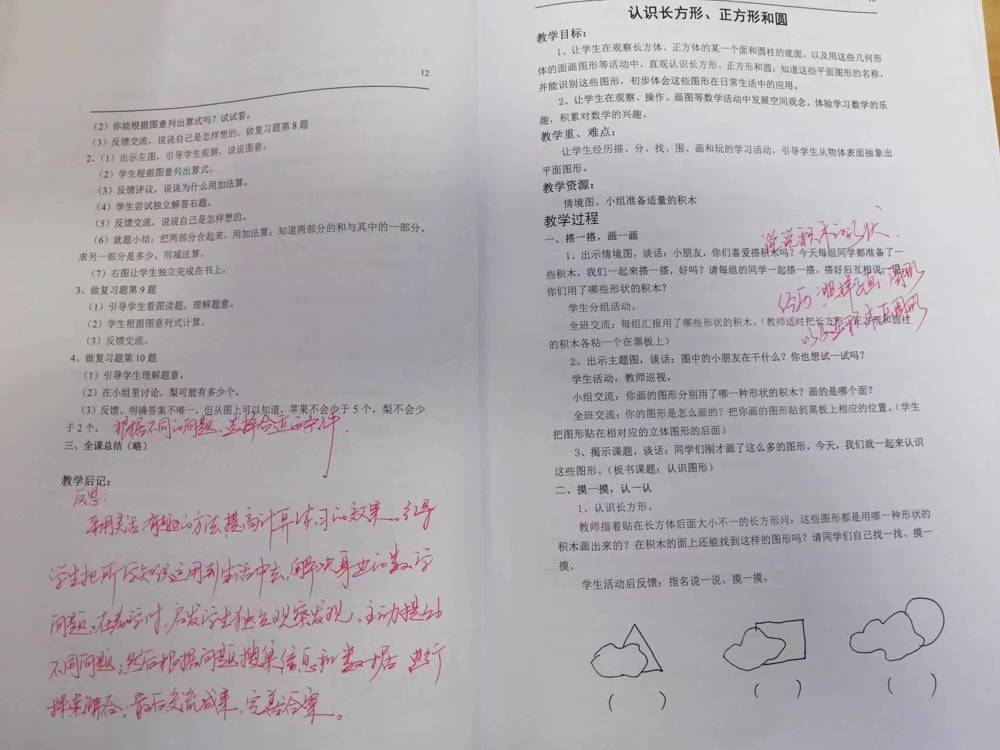 12
（2）你能根据图意列出算式吗？试试看。
（3）反馈交流，说说自己是怎样想的。做复习题第8题
2、（1）出示左图，引导学生观察，说说图意。
（2）学生根据图意列出算式。
（3）反馈评议，说说为什么用加法算。
（4）学生尝试独立解答右题。
（5）反馈交流，说说自己是怎样想的。
（6）就题小结：把两部分合起来，用加法算；知道两部分的和与其中的一部分，
求另一部分是多少，用减法。
（7）右图让学生独立完成在书上。
3、做复习题第9题
（1）引导学生看图读题，理解题意。
（2）学生根据图意列式计算。
（3）反馈交流。
4、做复习题第10题
（1）引导学生理解题意。
（2）在小组里讨论，梨可能有多少个。
（3）反馈，明确答案不唯一，但从图上可以知道，苹果不会少于5个，梨不会少
于2个。 根据不同的问题，选择合适的条件.
三、全课总结（略）
教学后记：
反思：
采用灵活有趣的方法，提高计算练习的效果。引导
学生把所学知识运用到生活中去，解决身边的数学
问题。在教学时，启发学生独立观察发现，主动提出
不同问题；然后根据问题搜集信息和数据进行
探索解答；最后交流成果，完善答案。
认识长方形、正方形和圆
教学目标：
1、让学生在观察长方体、正方体的某一个面和圆柱的底面，以及用这些几何形
体的面画图形等活动中，直观认识长方形、正方形和圆；知道这些平面图形的名称，
并能识别这些图形，初步体会这些图形在日常生活中的应用。
2、让学生在观察、操作、画图等数学活动中发展空间观念，体验学习数学的乐
趣，积累对数学的兴趣。
教学重、难点：
让学生经历描、分、找、围、画和玩的学习活动，引导学生从物体表面抽象出
平面图形。
教学资源：
情境图、小组准备适量的积木
教学过程
说说积木的形状.
一、搭一搭，画一画
1、出示情境图，谈话：小朋友，你们喜爱搭积木吗？今天每组同学都准备了一
些积木，我们一起来搭一搭，好吗？请每组的同学一起搭一搭，搭好后互相说一说
你们用了哪些形状的积木？
经历怎样画图形
学生分组活动。
以及
全班交流：每组汇报用了哪些形状的积木。（教师适时把长方形、正方形和圆柱
的积木各粘一个在黑板上）
2、出示主题图，谈话：图中的小朋友在干什么？你也想试一试吗？
学生活动，教师巡视。
小组交流：你画的图形分别用了哪一种形状的积木？画的是哪个面？
全班交流：你的图形是怎么画的？把你画的图形贴到黑板上相应的位置。（学生
把图形贴在相对应的立体图形的后面）
3、揭示课题，谈话：同学们刚才画了这么多的图形，今天，我们就一起来认识
这些图形。（板书课题：认识图形）
二、摸一摸，认一认
1、认识长方形。
教师指着贴在长方体后面大小不一的长方形问：这些图形都是用哪一种形状的
积木画出来的？在积木的面上还能找到这样的图形吗？请同学们自己找一找、摸一
摸。
学生活动后反馈：指名说一说、摸一摸。
（ ） （ ） （ ）